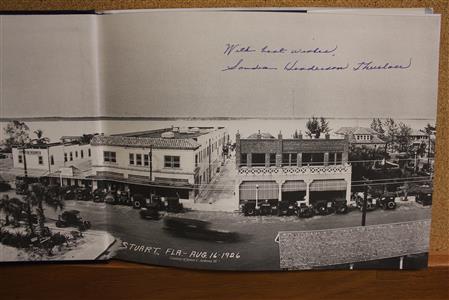 With best wishes,
Sandra Henderson Thurlow
STUART, FLA - AUG. 16 - 1926